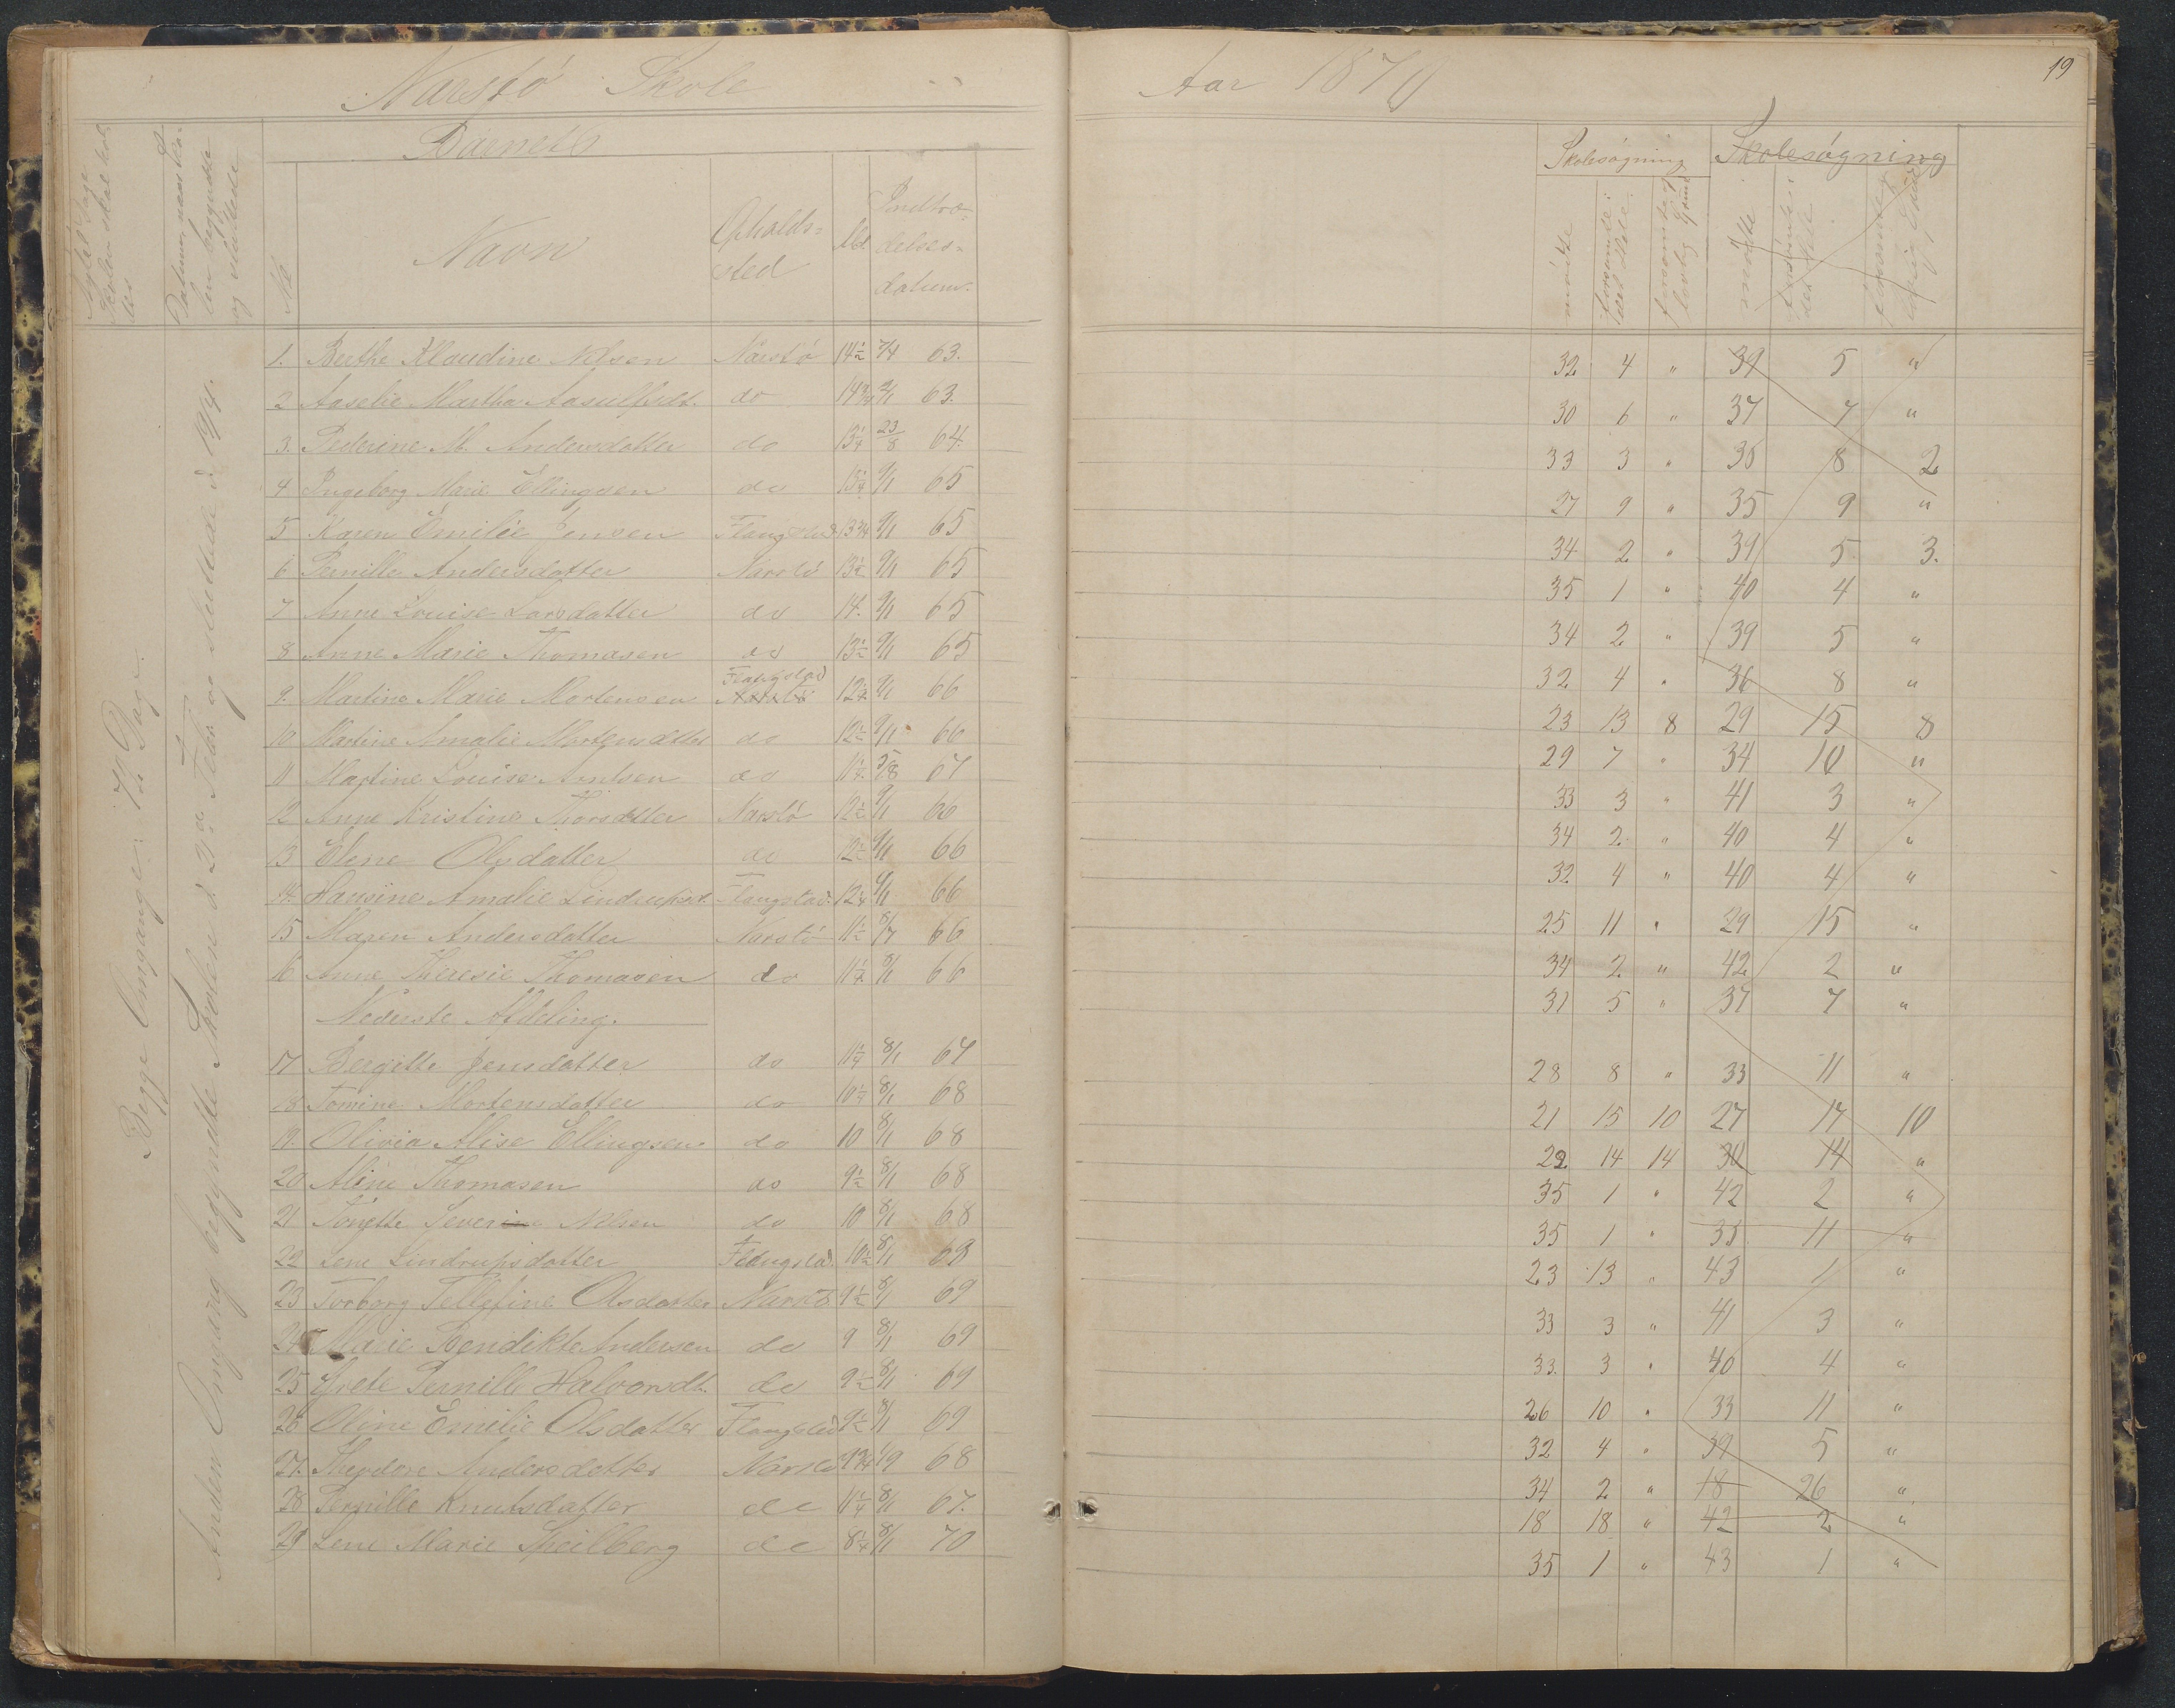 Narstö Skole
Aar 1870
19
Barnets
Navn
Opholds-
sted
Ald.
Indtræ-
delses-
datum.
No
Skolesøgning
Skolesøgning
mødte
forsømte
mødte
Begge Omgange: 72 Dage.
Anden Omgang begyndte Skolen d. 2den Febr og sluttede d 19/4.
1. Berthe Klaudine Nilsen Narstö 14½ 7/4 63. 32 4 " 39 5 "
2 Aaselie Martha do 63. 30 6 " 37 7 "
3. Pederine M. Andersdatter do 13¼ 23/8 64. 33 3 " 36 8 2
4 Ingeborg Marie Ellingsen do 9/1 65 27 9 " 35 9 "
5 Karen Emilie Jensen Flangstad 13¾ 9/1 65 34 2 " 39 5 3.
6 Pernille Andersdatter Narstö 13½ 9/1 65 35 1 " 40 4 "
7 Anne Louise Larsdatter do 14. 9/1 65 34 2 " 39 5 "
8 Anne Marie Thomasen do 13½ 9/1 65 32 4 " 36 8 "
9. Martine Marie Mortensen Flangstad Narstö 9/1 66 23 13 8 29 15 8
10 Martine Amalie Mortensdatter do 12½ 9/1 66 29 7 " 34 10 "
11 Martine Louise do 67 33 3 " 41 3 "
12 Anne Kristine Thorsdatter Narstö 12½ 9/1 66 34 2 " 40 4 "
13 Elene Olsdatter do 12½ 9/1 66 32 4 " 40 4 "
14. Hansine Amalie Flangstad 12¼ 9/1 66 25 11 " 29 15 "
15 Maren Andersdatter Narstö 11½ 8/7 66 34 2 " 42 2 "
16 Anne Theresie Thomasen do 66 31 5 " 37 7 "
Nederste Afdeling.
17 Bergitte Jensdatter do 11¼ 8/1 67 28 8 " 33 11 "
18 Tomine Mortensdatter do 8/1 68 21 15 10 27 17 10
19. Olivia Alise Ellingsen do 10 8/1 68 22 14 14 30 14 "
20 Aline Thomasen do 9½ 8/1 68 35 1 " 42 2 "
21 Tonette Severine Nilsen do 10 8/1 68 35 1 " 33 11 "
22 Lene Lindrupsdatter Flangstad 10½ 8/1 68 23 13 " 43 1 "
23 Torborg Tellefine Olsdatter Narstö 9½ 8/1 69 33 3 " 41 3 "
24 Marie Bendikte Andersen do 9 8/1 69 33. 3 " 40 4 "
25 Grete Pernille Halvorsdt. do 9½ 8/1 69 26 10 " 33 11 "
26 Oline Emilie Olsdatter Flangstad 9½ 8/1 69 32 4 " 39 5 "
27. Theodore Andersdatter Narstö 68 34 2 " 18 26 "
28 Pernille Knutsdatter do 11¼ 8/1 67. 18 18 " 42 2 "
29 Lene Marie Speilberg do 8¼ 8/1 70 35 1 " 43 1 "